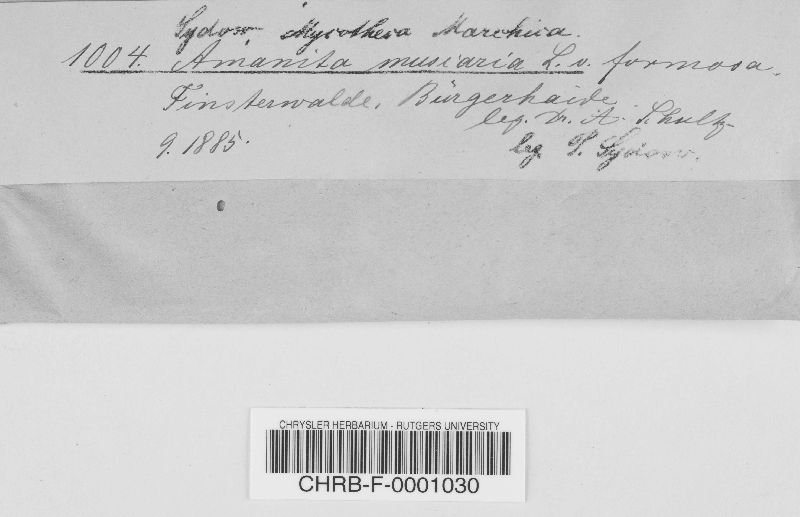 Sydow Mycotheca Marchica.
1004. Amanita muscaria L. v. formosa.
Finsterwalde, Bürgerhaide
leg. Dr. A. Schultz
9. 1885.
leg. P. Sydow.
CHRYSLER HERBARIUM - RUTGERS UNIVERSITY
CHRB-F-0001030